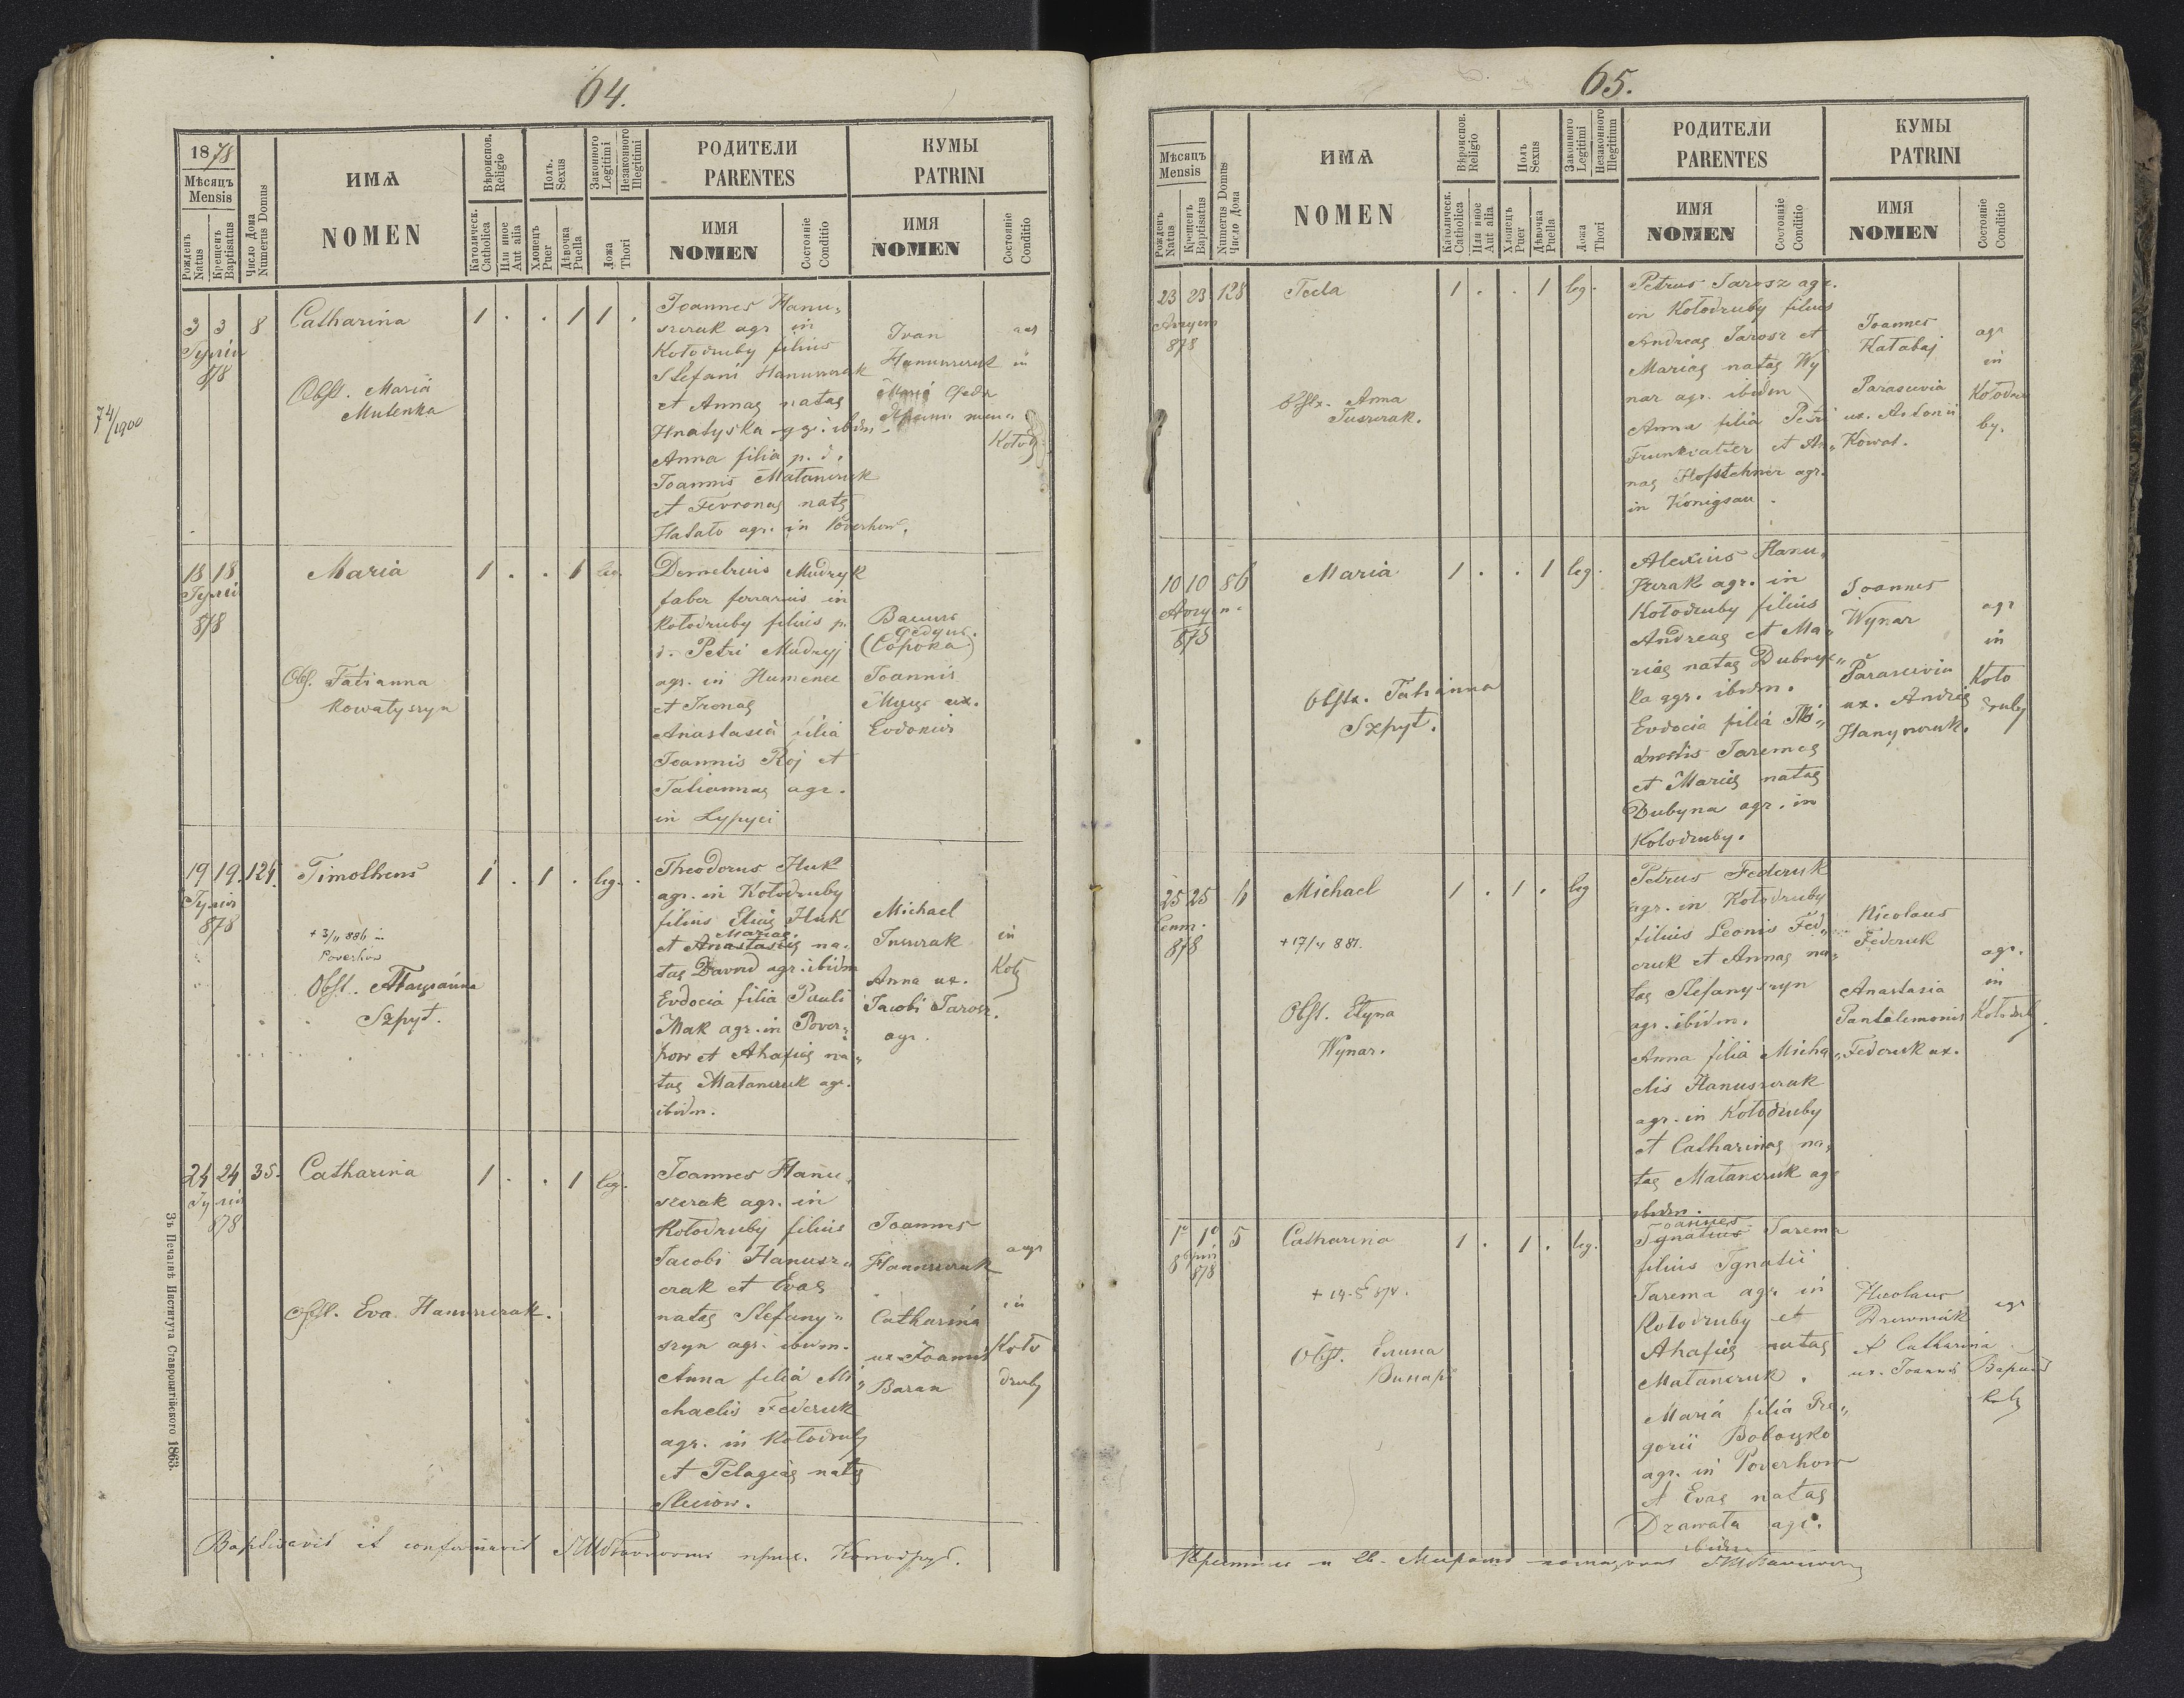 64.
1878
Мѣсяцъ
Mensis
Рожденъ
Natus
Крещенъ
Baptisatus
Число Дома
Numerus Domus
ИМѦ
NOMEN
Вѣроиспов.
Religio
Католическ.
Catholica
Или иное
Aut alia
Полъ.
Sexus
Хлопецъ
Puer
Дѣвочка
Puella
Законного
Legitimi
Незаконного
Illegitimi
Ложа
Thori
РОДИТЕЛИ
PARENTES
ИМЯ
NOMEN
Состояніе
Conditio
КУМЫ
PATRINI
ИМЯ
NOMEN
Состояніе
Conditio
74/1900
3 3 8 Catharina 1 . . 1 1 .
878
Obst. Maria
Mutenka
Joannes Hanu„
szczak agr in
Kołodruby filius
Stefani Hanuszczak
et Annae natae
Hnatyska agr. ibidm
Anna filia p. d.
Joannis Matanczuk
et Fevronae natae
Hałato agr. in Powerhow.
Ivan
in
Kołod
18 18 Maria 1 . . 1 leg.
878
Obs. Tatianna
Kowatyszyn
Demetrius Mudryk
faber ferrarius in
Kołodruby filius p.
d. Petri Mudryj
agr. in Humenec
et Ironae
Anastasia filia
Joannis Roj et
Tatiannae agr.
in Lypyci
(Сорока)
Joannis
ux.
Evdokia
19 19. 124. Timotheus 1 . 1 . leg. .
878
+ 3/11 886 in
Poverhow
Obst.
Szpyt.
Theodorus Huk
agr. in Kołodruby
filius Eliae Huk
Mariae.
et Anastasiae na„
tae Davyd agr. ibidm
Evdocia filia Pauli
Mak agr. in Pover„
how et Ahafiae na„
tae Matanczuk agr.
ibidm.
Michael
Anna ux.
Jacobi Jarosz.
agr.
in
Koło
24 24 35. Catharina 1 . . 1 leg.
878
Obst. Eva Hanuszczak.
Joannes Hanu„
szczak agr. in
Kołodruby filius
Jacobi Hanusz„
czak et Evae
natae Stefany„
szyn agr. ibidm.
Anna filia Mi„
chaelis Fedczuk
agr. in Kołodruby
et Pelagiae natae
Joannes
Hanuszczak
Catharina
ux. Joannis
Baran
agr
in
Koło
druby
Baptisavit et confirmavit
Зъ Печатнѣ Института Ставропигійского 1863.
65.
Мѣсяцъ
Mensis
Рожденъ
Natus
Крещенъ
Baptisatus
Numerus Domus
Число Дома
ИМѦ
NOMEN
Вѣроиспов.
Religio
Католическ.
Catholica
Или иное
Aut alia
Полъ
Sexus
Хлопецъ
Puer
Дѣвочка
Puella
Законного
Legitimi
Незаконного
Illegitimum
Ложа
Thori
РОДИТЕЛИ
PARENTES
ИМЯ
NOMEN
Состояніе
Conditio
КУМЫ
PATRINI
ИМЯ
NOMEN
Состояніе
Conditio
23 23 128 Tecla 1 . . 1 leg.
878
Obstx. Anna
Petrus Jarosz agr.
in Kołodruby filius
Andreae Jarosz et
Mariae natae Wy
nar agr. ibidm
Anna filia Petri
et An„
nae Hofstehner agr.
in Königsau.
Joannes
Hatabaj
Parascevia
ux. Antonii
Kowal.
agr
in
Kołodru
by.
10 10 86 Maria 1 . . 1 leg.
878
Obstx. Tatianna
Szpyt.
Alexius Hanu„
szczak agr. in
Kołodruby filius
Andreae et Ma„
riae natae Dubny„
ka agr. ibidm.
Evdocia filia
Jaremae
et Mariae natae
Dubyna agr. in
Kolodruby.
Joannes
Wynar
Parascevia
ux. Andreae
agr
in
Koło
druby
25 25 6 Michael 1 . 1 . leg
878
+ 17/4 881.
Obst. Elyna
Wynar.
Petrus Fedczuk
agr. in Kołodruby
filius Leonis Fed„
czuk et Annae na„
tae Stefanyszyn
agr. ibidm.
Anna filia Micha„
elis Hanuszczak
agr. in Kołodruby
et Catharinae na„
tae Matanczuk agr
ibidm.
Nicolaus
Fedczuk
Anastasia
Pantalemonis
Fedczuk ux.
agr.
in
Kołodruby.
10 10 5 Catharina 1 . 1 . leg.
878
Obst. Елина
Винарь
Joannes
Ignatius Jarema
filius Ignatii
Jarema agr. in
Kołodruby et
Ahafiae natae
Matanczuk.
Maria filia Gre„
gorii
agr. in Poverhow
et Evae natae
Dzamata agr.
ibidm
Nicolaus
Drewniak
et Catharina
ux. Joannis
agr